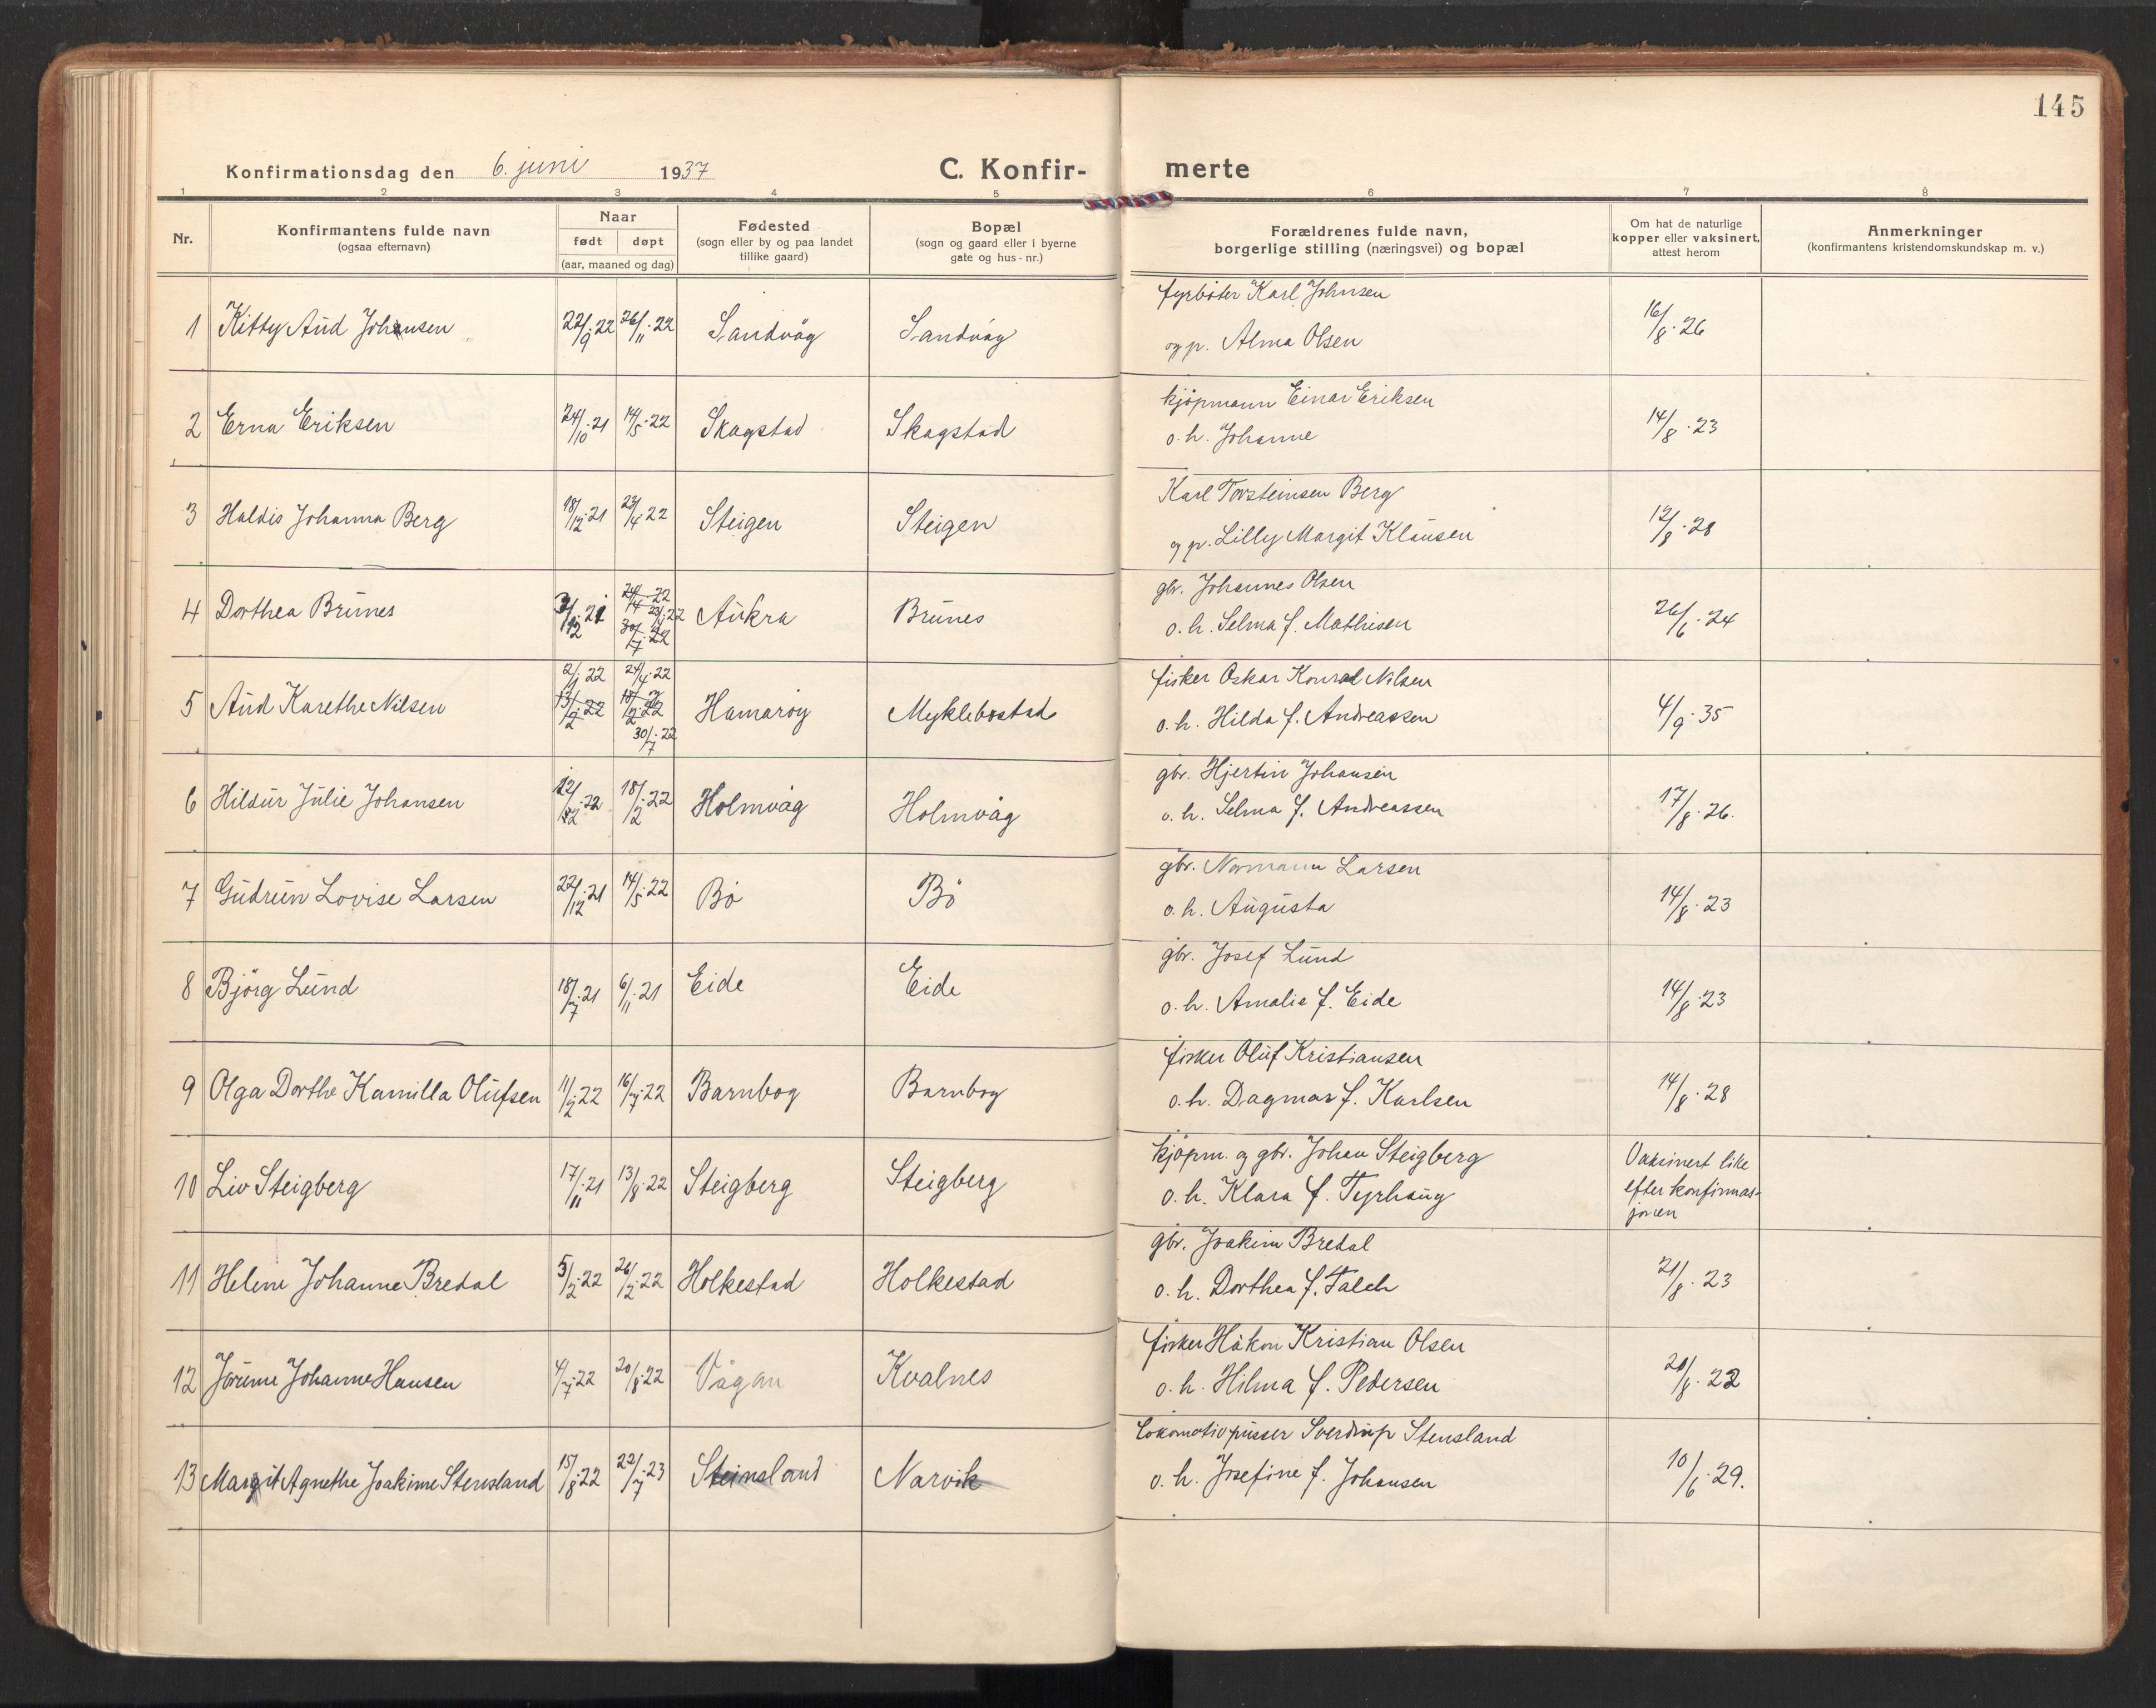 145
Konfirmationsdag den 6. juni 1937
C. Konfir-
merte
1 2 3 4 5 6 7 8
Nr.
Konfirmantens fulde navn
(ogsaa efternavn)
Naar
født døpt
(aar, maaned og dag)
Fødested
(sogn eller by og paa landet
tillike gaard)
Bopæl
(sogn og gaard eller i byerne
gate og hus-nr.)
Forældrenes fulde navn,
borgerlige stilling (næringsvei) og bopæl
Om hat de naturlige
kopper eller vaksinert,
attest herom
Anmerkninger
(konfirmantens kristendomskundskap m. v.)
fyrbøter Karl Johnsen
1 Kitty Aud Johansen 22/9.22 26/11.22 Sandvåg Sandvåg 16/8.26
og p. Alma Olsen
kjøpmann Einar Eriksen
2 Erna Eriksen 24/10.21 14/5.22 Skagstad Skagstad 14/8.23
o. h. Johanne
Karl Torsteinsen Berg
3 Haldis Johanna Berg 18/12.21 23/4.22 Steigen Steigen 12/8.28
og p. Lilly Margit Klausen
gbr. Johannes Olsen
4 Dorthea Brunes Aukra Brunes 26/6.24
o. h. Selma f. Mathisen
2/1.22 24/4.22
fisker Oskar Konrad Nilsen
5 Aud Karethe Nilsen 13/2.22 Hamarøy Myklebostad 4/9.35
o. h. Hilda f. Andreassen
30/7.22
gbr. Hjertin Johansen
6 Hildur Julie Johansen 18/2.22 Holmvåg Holmvåg 17/8.26.
o. h. Selma f. Andreassen
gbr. Normann Larsen
7 Gudrun Lovise Larsen 22/12.21 14/5.22 Bø Bø 14/8.23
o. h. Augusta
gbr. Josef Lund
8 Bjørg Lund 18/7.21 6/11.21 Eide Eide 14/8.23
o. h. Amalie f. Eide
fisker Oluf Kristiansen
9 Olga Dorthe Kamilla Olufsen 11/2.22 16/7.22 Barnbog Barnbog 14/8.28
o. h. Dagmar f. Karlsen
kjøpm. og gbr. Johan Steigberg
10 Liv Steigberg 17/11.21 13/8.22 Steigberg Steigberg
o. h. Klara f. Tyrhaug
Vaksinert like
efter konfirmas-
jonen
gbr. Joakim Bredal
11 Helene Johanne Bredal 5/2.22 26/2.22 Holkestad Holkestad 21/8.23
o. h. Dorthea f. Falch
fisker Håkon Kristian Olsen
12 Jorunn Johanne Hansen 4/7.22 20/8.22 Vågan Kvalnes 20/8.22
o. h. Hilma f. Pedersen
Lokomotivpusser Sverdrup Stensland
13 Margit Agnethe Joakime Stensland 15/8.22 22/7.23 Steinsland Narvik 10/6.29.
o. h. Josefine f. Johansen